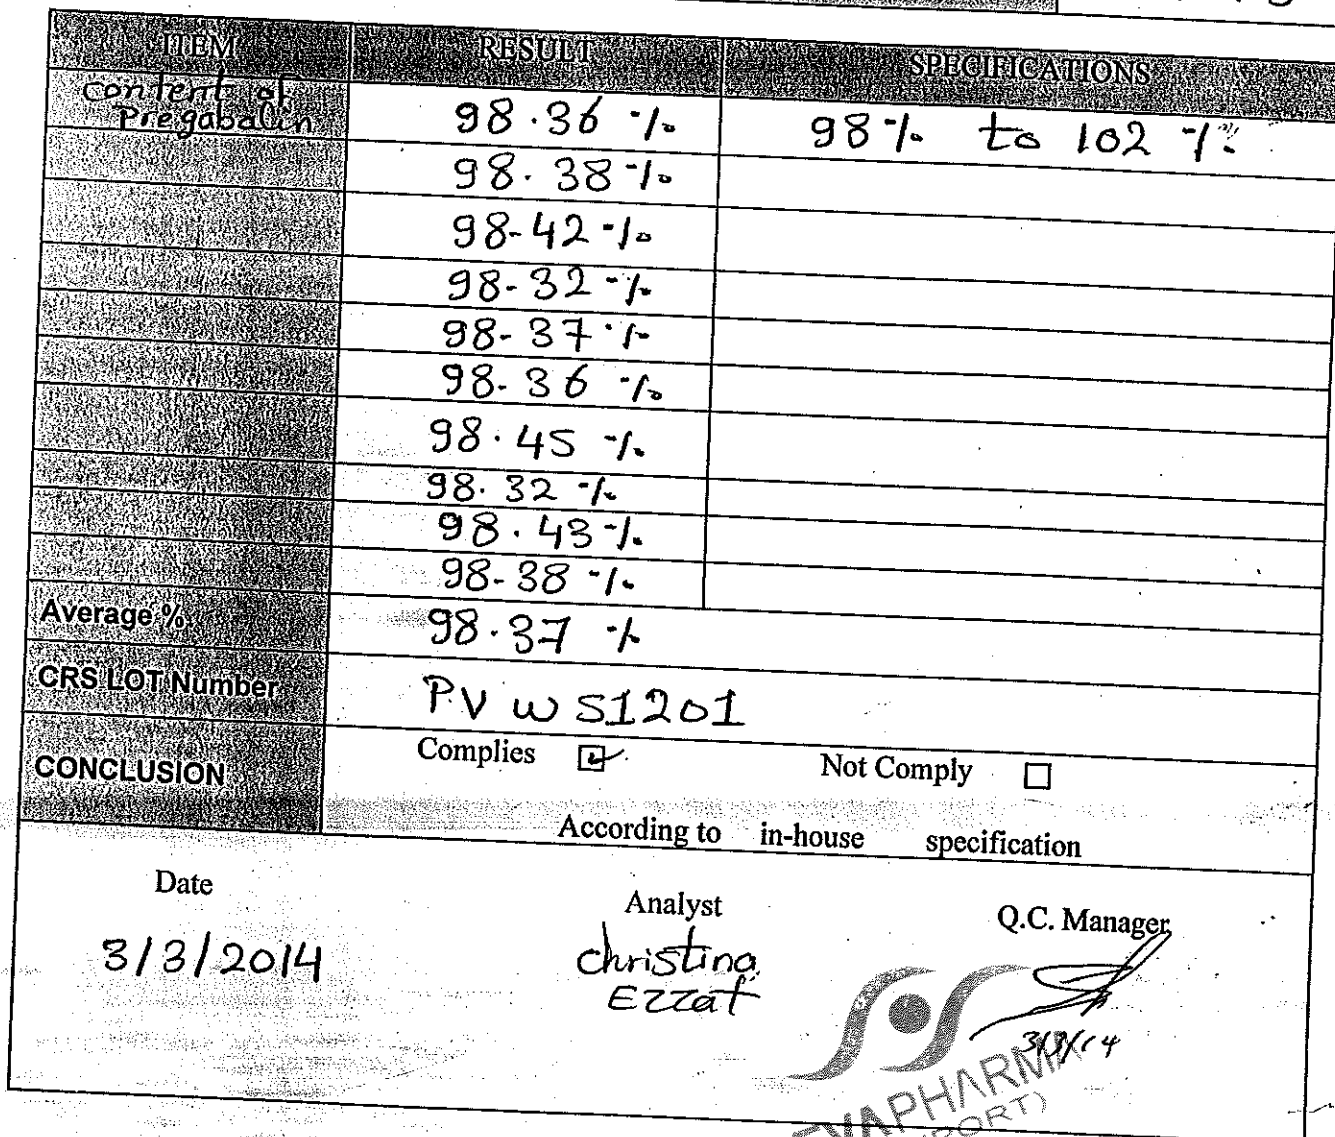 ITEM RESULT SPECIFICATIONS
Content of
Pregabalin 98.36 % 98% to 102 %
98.38 %
98-42 %
98-32 %
98-37 %
98-36 %
98.45 %
98.32 %
98.43 %
98-38 %
Average % 98.37 %
CRS LOT Number PV WS1201
CONCLUSION Complies Not Comply
According to in-house specification
Date Analyst Q.C. Manager
3/3/2014 christina
Ezzat
3/3/14
EVAPHARMA